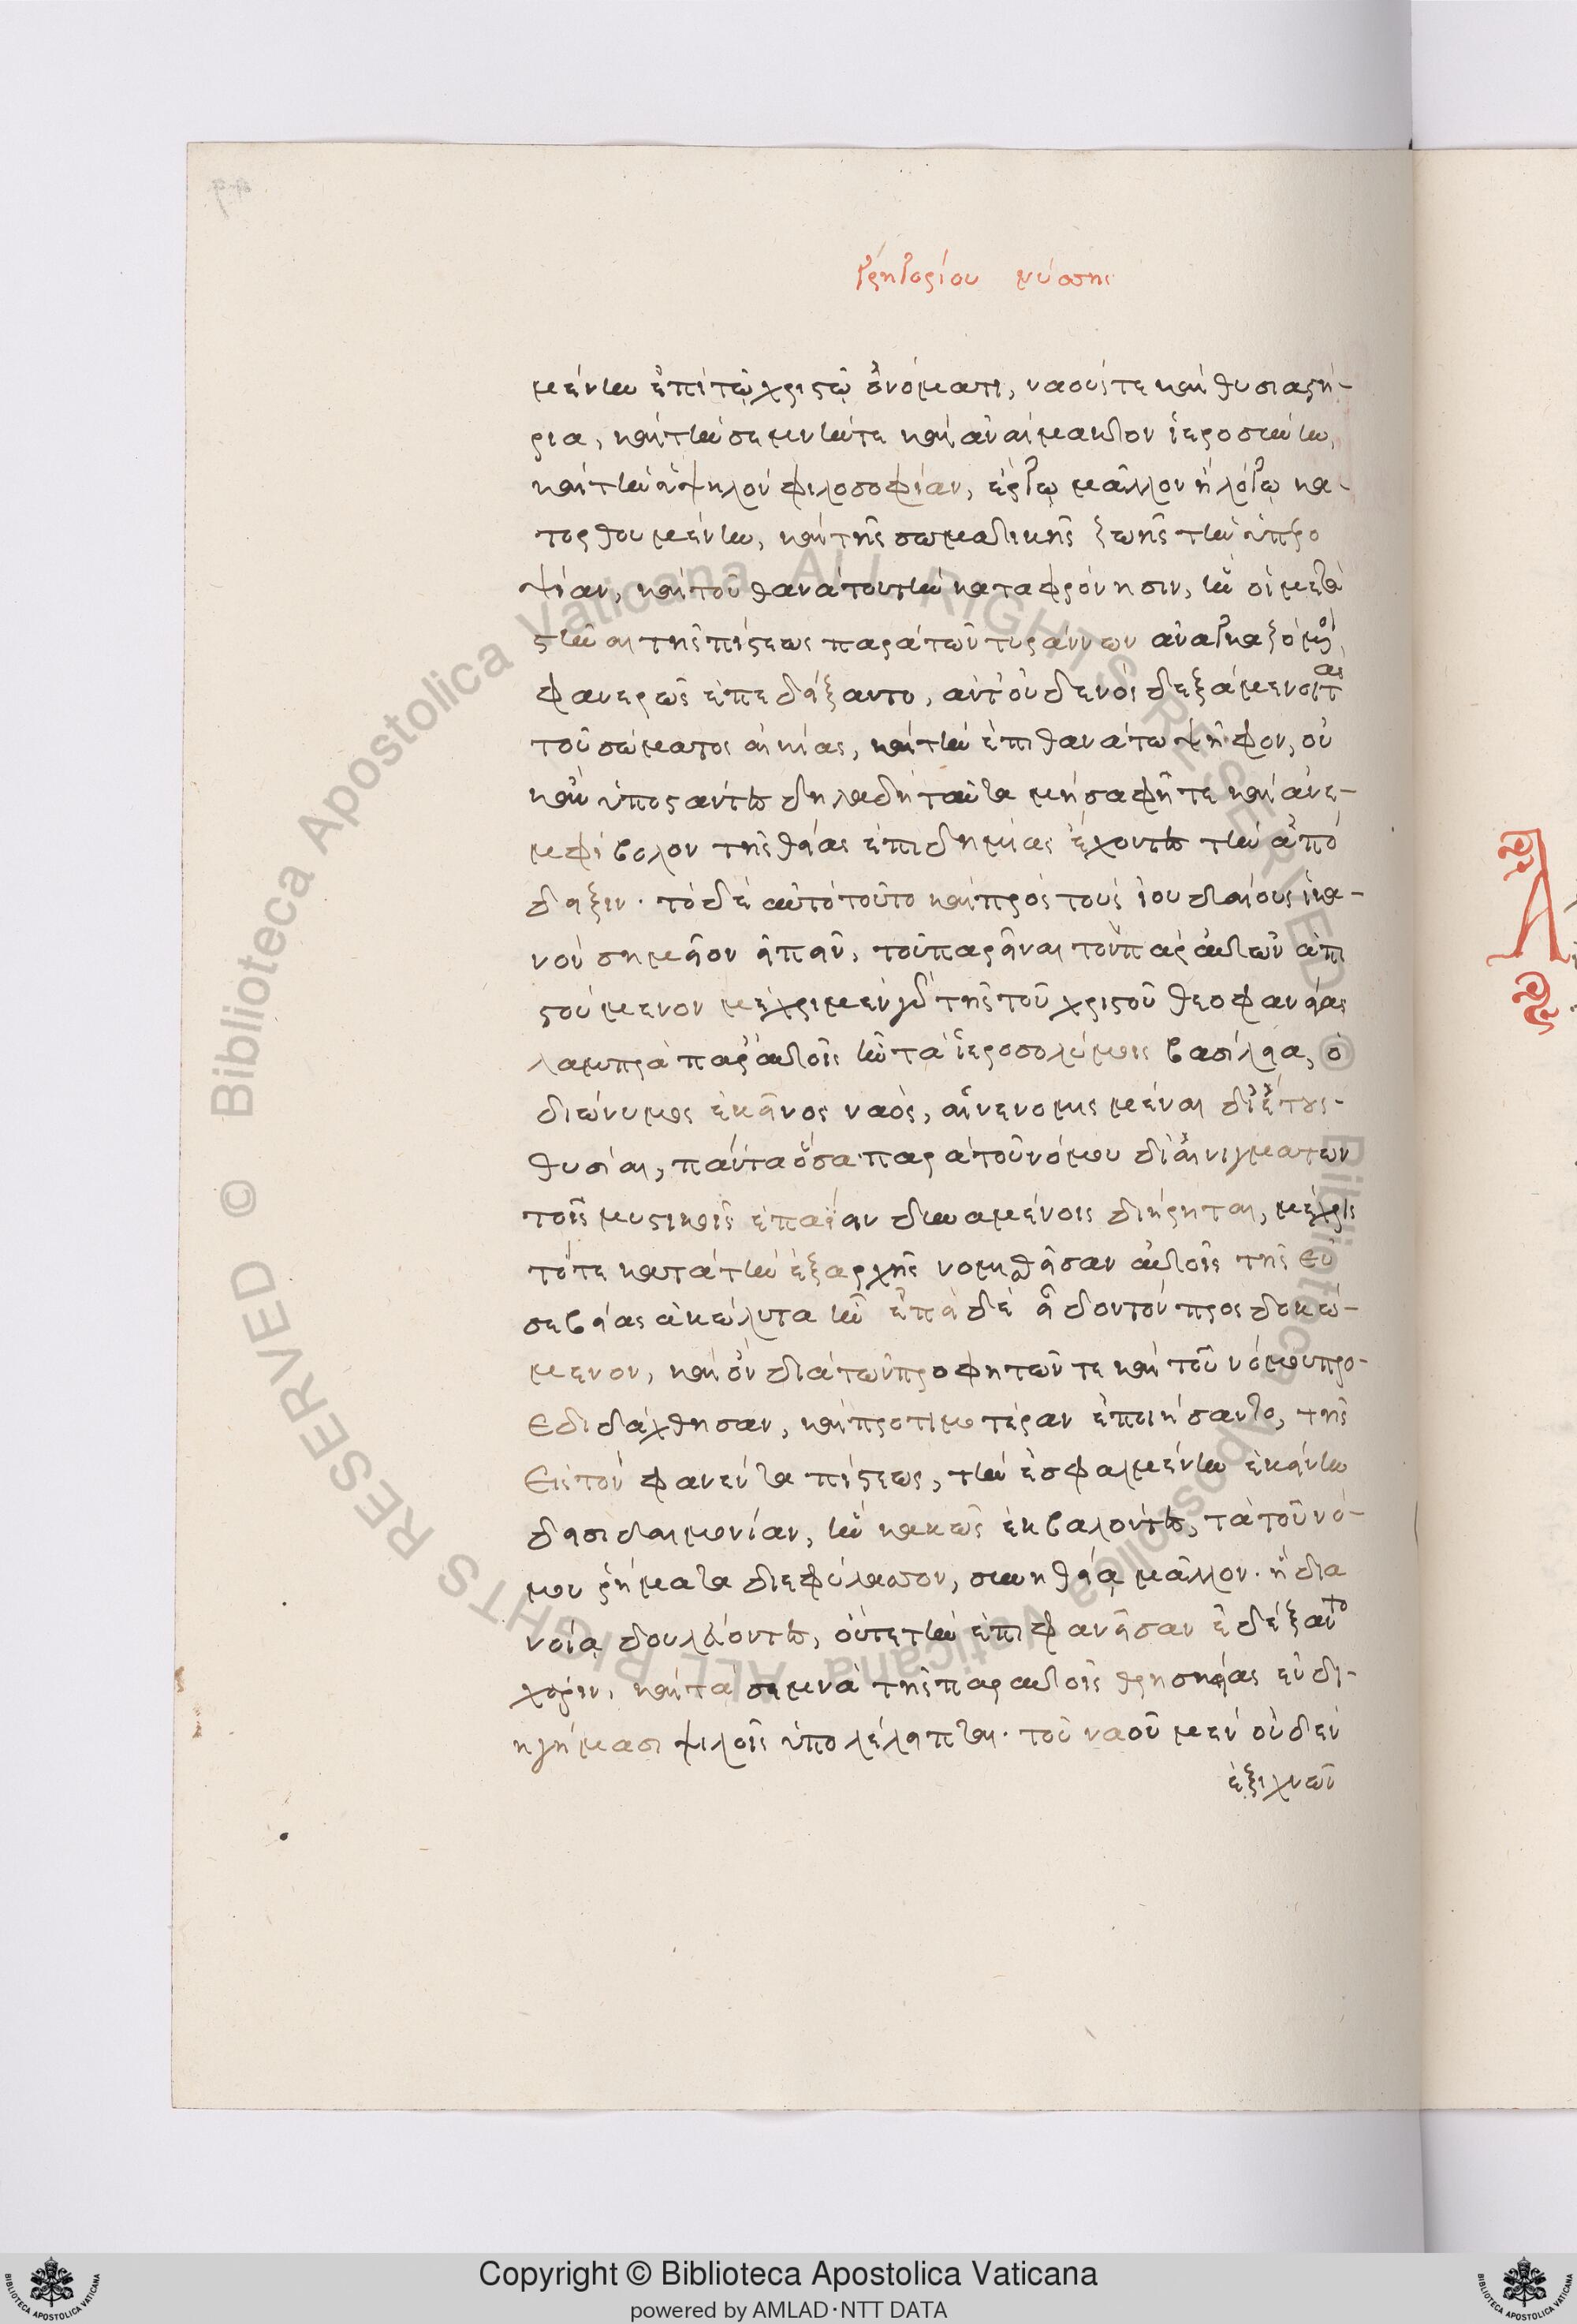 Γρηγορίου νύσσης
μένων ἐπὶ τῷ χριστῷ ὀνόματι, ναούς τε καὶ θυσιαστή-
ρια, καὶ τὴν σεμνήν τε καὶ ἀναίμακτον ἱερωσύνην,
καὶ τὴν ὑψηλὸν φιλοσοφίαν, ἔργῳ μᾶλλον ἢ λόγῳ κα-
τορθουμένην, καὶ τῆς σωματικῆς ζωῆς τὴν ὑπερο
ψίαν, καὶ τοῦ θανάτου τὴν καταφρόνησιν, ἣν οἱ μετα
στῆναι τῆς πίστεως παρὰ τῶν τυράννων ἀναγκαζόμενοι
φανερῶς ἐπεδείξαντο, ἀντ' οὐδενὸς δεξάμενοι τας
τοῦ σώματος αἰκίας, καὶ τὴν ἐπὶ θανάτω ψῆφον, οὐ
κἂν ὑποστάντες δηλαδὴ ταῦτα μὴ σαφῆ τε καὶ ἀνα-
μφίβολον τῆς θείας ἐπιδημίας ἔχοντες τὴν ἀπό
δειξιν. τὸ δὲ αὐτὸ τοῦτο καὶ πρὸς τοὺς ἰουδαίους ἱκα-
νὸν σημεῖον εἰπεῖν, τοῦ παρεῖναι τὸν παρ' αὐτῶν ἀπι
στούμενον μέχρι μὲν γὰρ τῆς τοῦ χριστοῦ θεοφανείας
λαμπρὰ παρ' αὐτοῖς ἦν τὰ ἱεροσολύμοις βασίλεια, ὁ
διώνυμος ἐκεῖνος ναὸς, αἱ νενομισμέναι δι' ἔτους-
θυσίαι, πάντα ὅσα παρὰ τοῦ νόμου δι' αἰνιγμάτων
τοῖς μυστικοῖς ἐπαΐειν δυναμένοις διήρηται, μέχρις
τότε κατὰ τὴν ἐξαρχῆς νομισθεῖσαν αὐτοῖς τῆς εὐ
σεβείας ἀκώλυτα ἦν ἐπεὶ δὲ εἶδον τὸν προσδοκώ-
μενον, καὶ ὃν διὰ τῶν προφητῶν τε καὶ τοῦ νόμου προ-
εδιδάχθησαν, καὶ προτιμοτέραν ἐποιήσαντο, τῆς
εἰς τὸν φανέντα πίστεως, τὴν ἐσφαλμένην ἐκείνην
δεισιδαιμονίαν, ἣν κακῶς ἐκβαλόντες, τὰ τοῦ νό-
μου ῥήματα διεφύλασσον, συνηθείᾳ μᾶλλον. ἢ δια
νοίᾳ δουλεύοντες, οὔτε τὴν ἐπιφανεῖσαν ἐδέξαντο
χάριν. καὶ τὰ σεμνὰ τῆς παρ αὐτοῖς θρησκείας ἐν δι-
ηγήμασι ψιλοῖς ὑπολέλειπται. τοῦ ναοῦ μὲν οὐδὲν
ἐξ ἰχνῶν